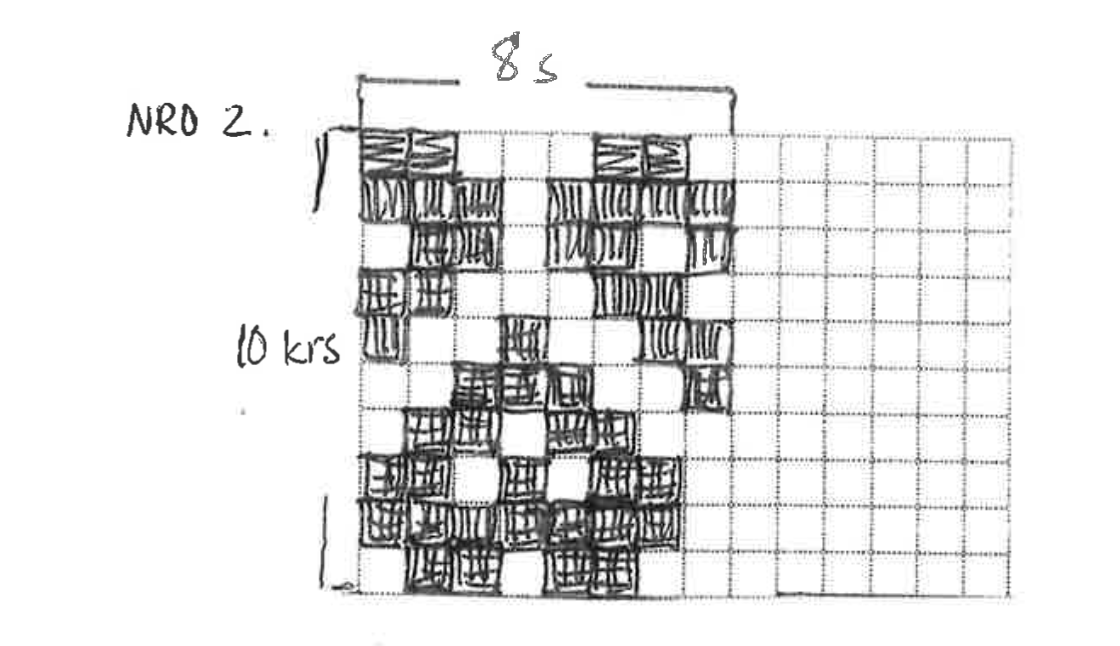 8 s
NRO 2.
10 krs